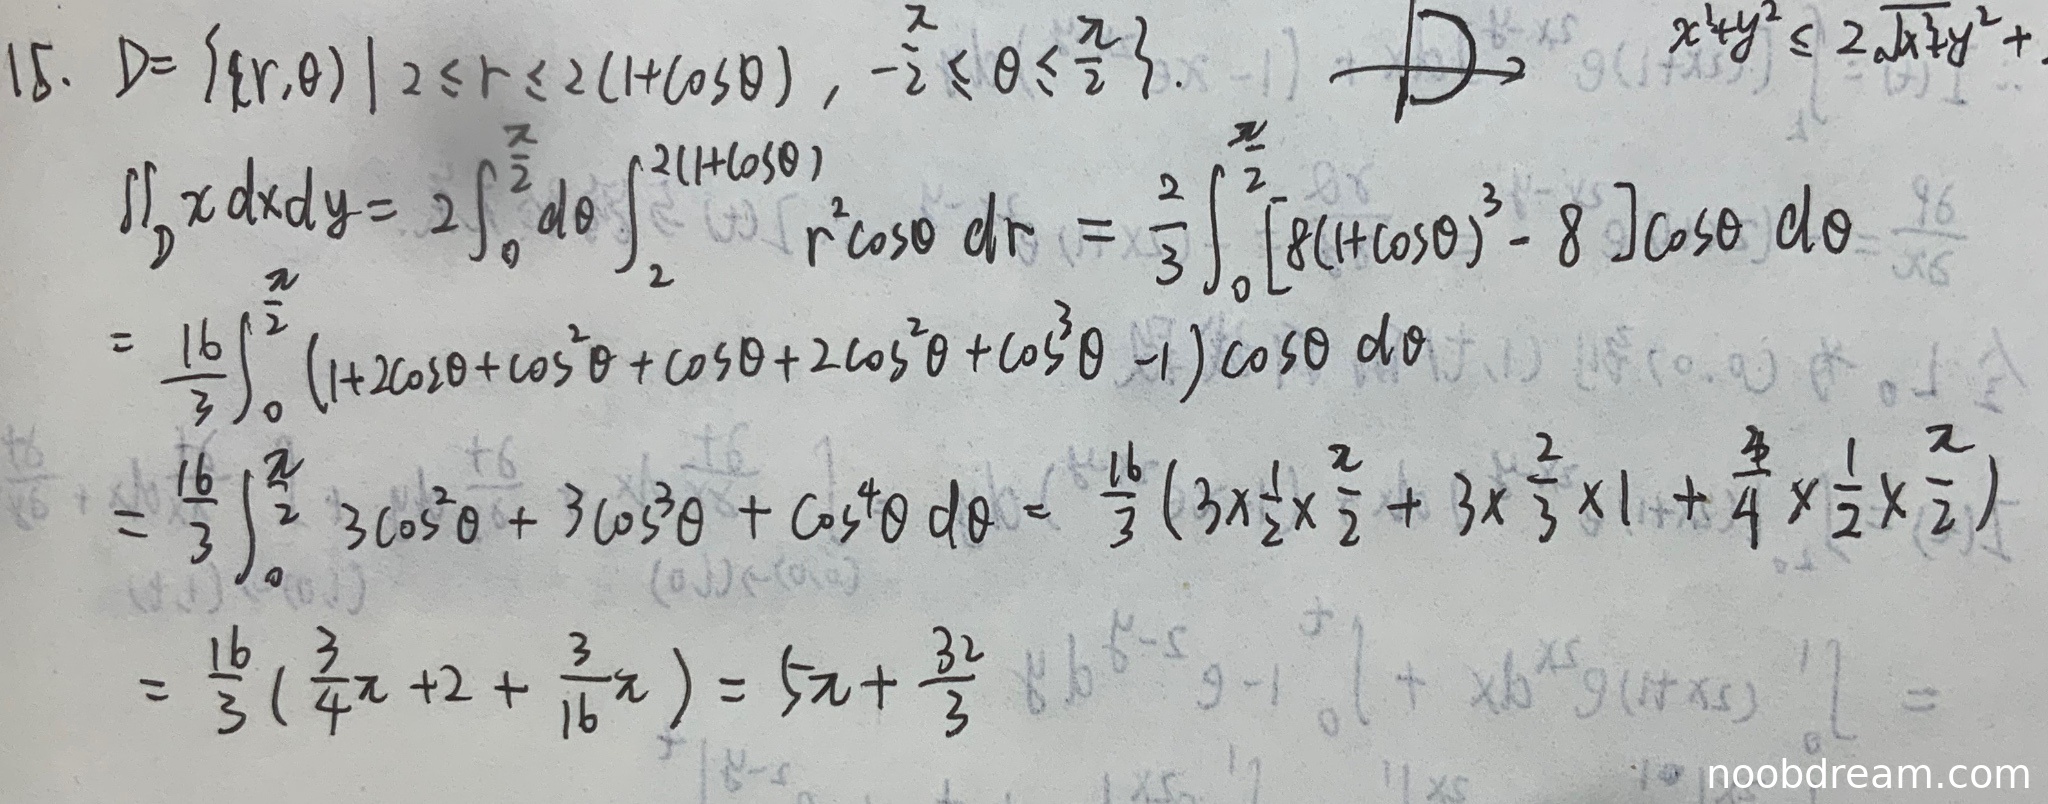 18. D = {(r,θ) | 2 ≤ r ≤ 2(1+cosθ), -π/2 ≤ θ ≤ π/2}. x²+y² ≤ 2√(x²+y²) +
∬_D x dxdy = 2∫_0^{π/2} dθ ∫_2^{2(1+cosθ)} r²cosθ dr = 2/3 ∫_0^{π/2} [8(1+cosθ)³ - 8] cosθ dθ
= 16/3 ∫_0^{π/2} (1+2cosθ+cos²θ+cosθ+2cos²θ+cos³θ -1) cosθ dθ
= 16/3 ∫_0^{π/2} 3cos²θ + 3cos³θ + cos⁴θ dθ = 16/3 (3×1/2×π/2 + 3×2/3×1 + 3/4×1/2×π/2)
= 16/3 (3/4 π + 2 + 3/16 π) = 5π + 32/3
noobdream.com